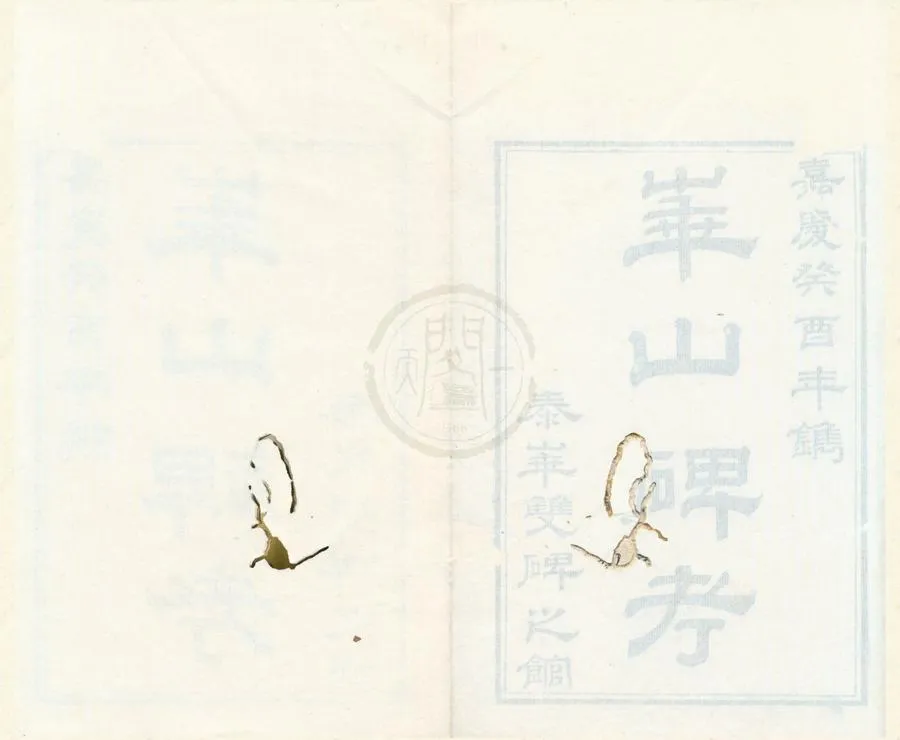 嘉慶癸酉年鐫
崋山碑考
泰崋雙碑之館